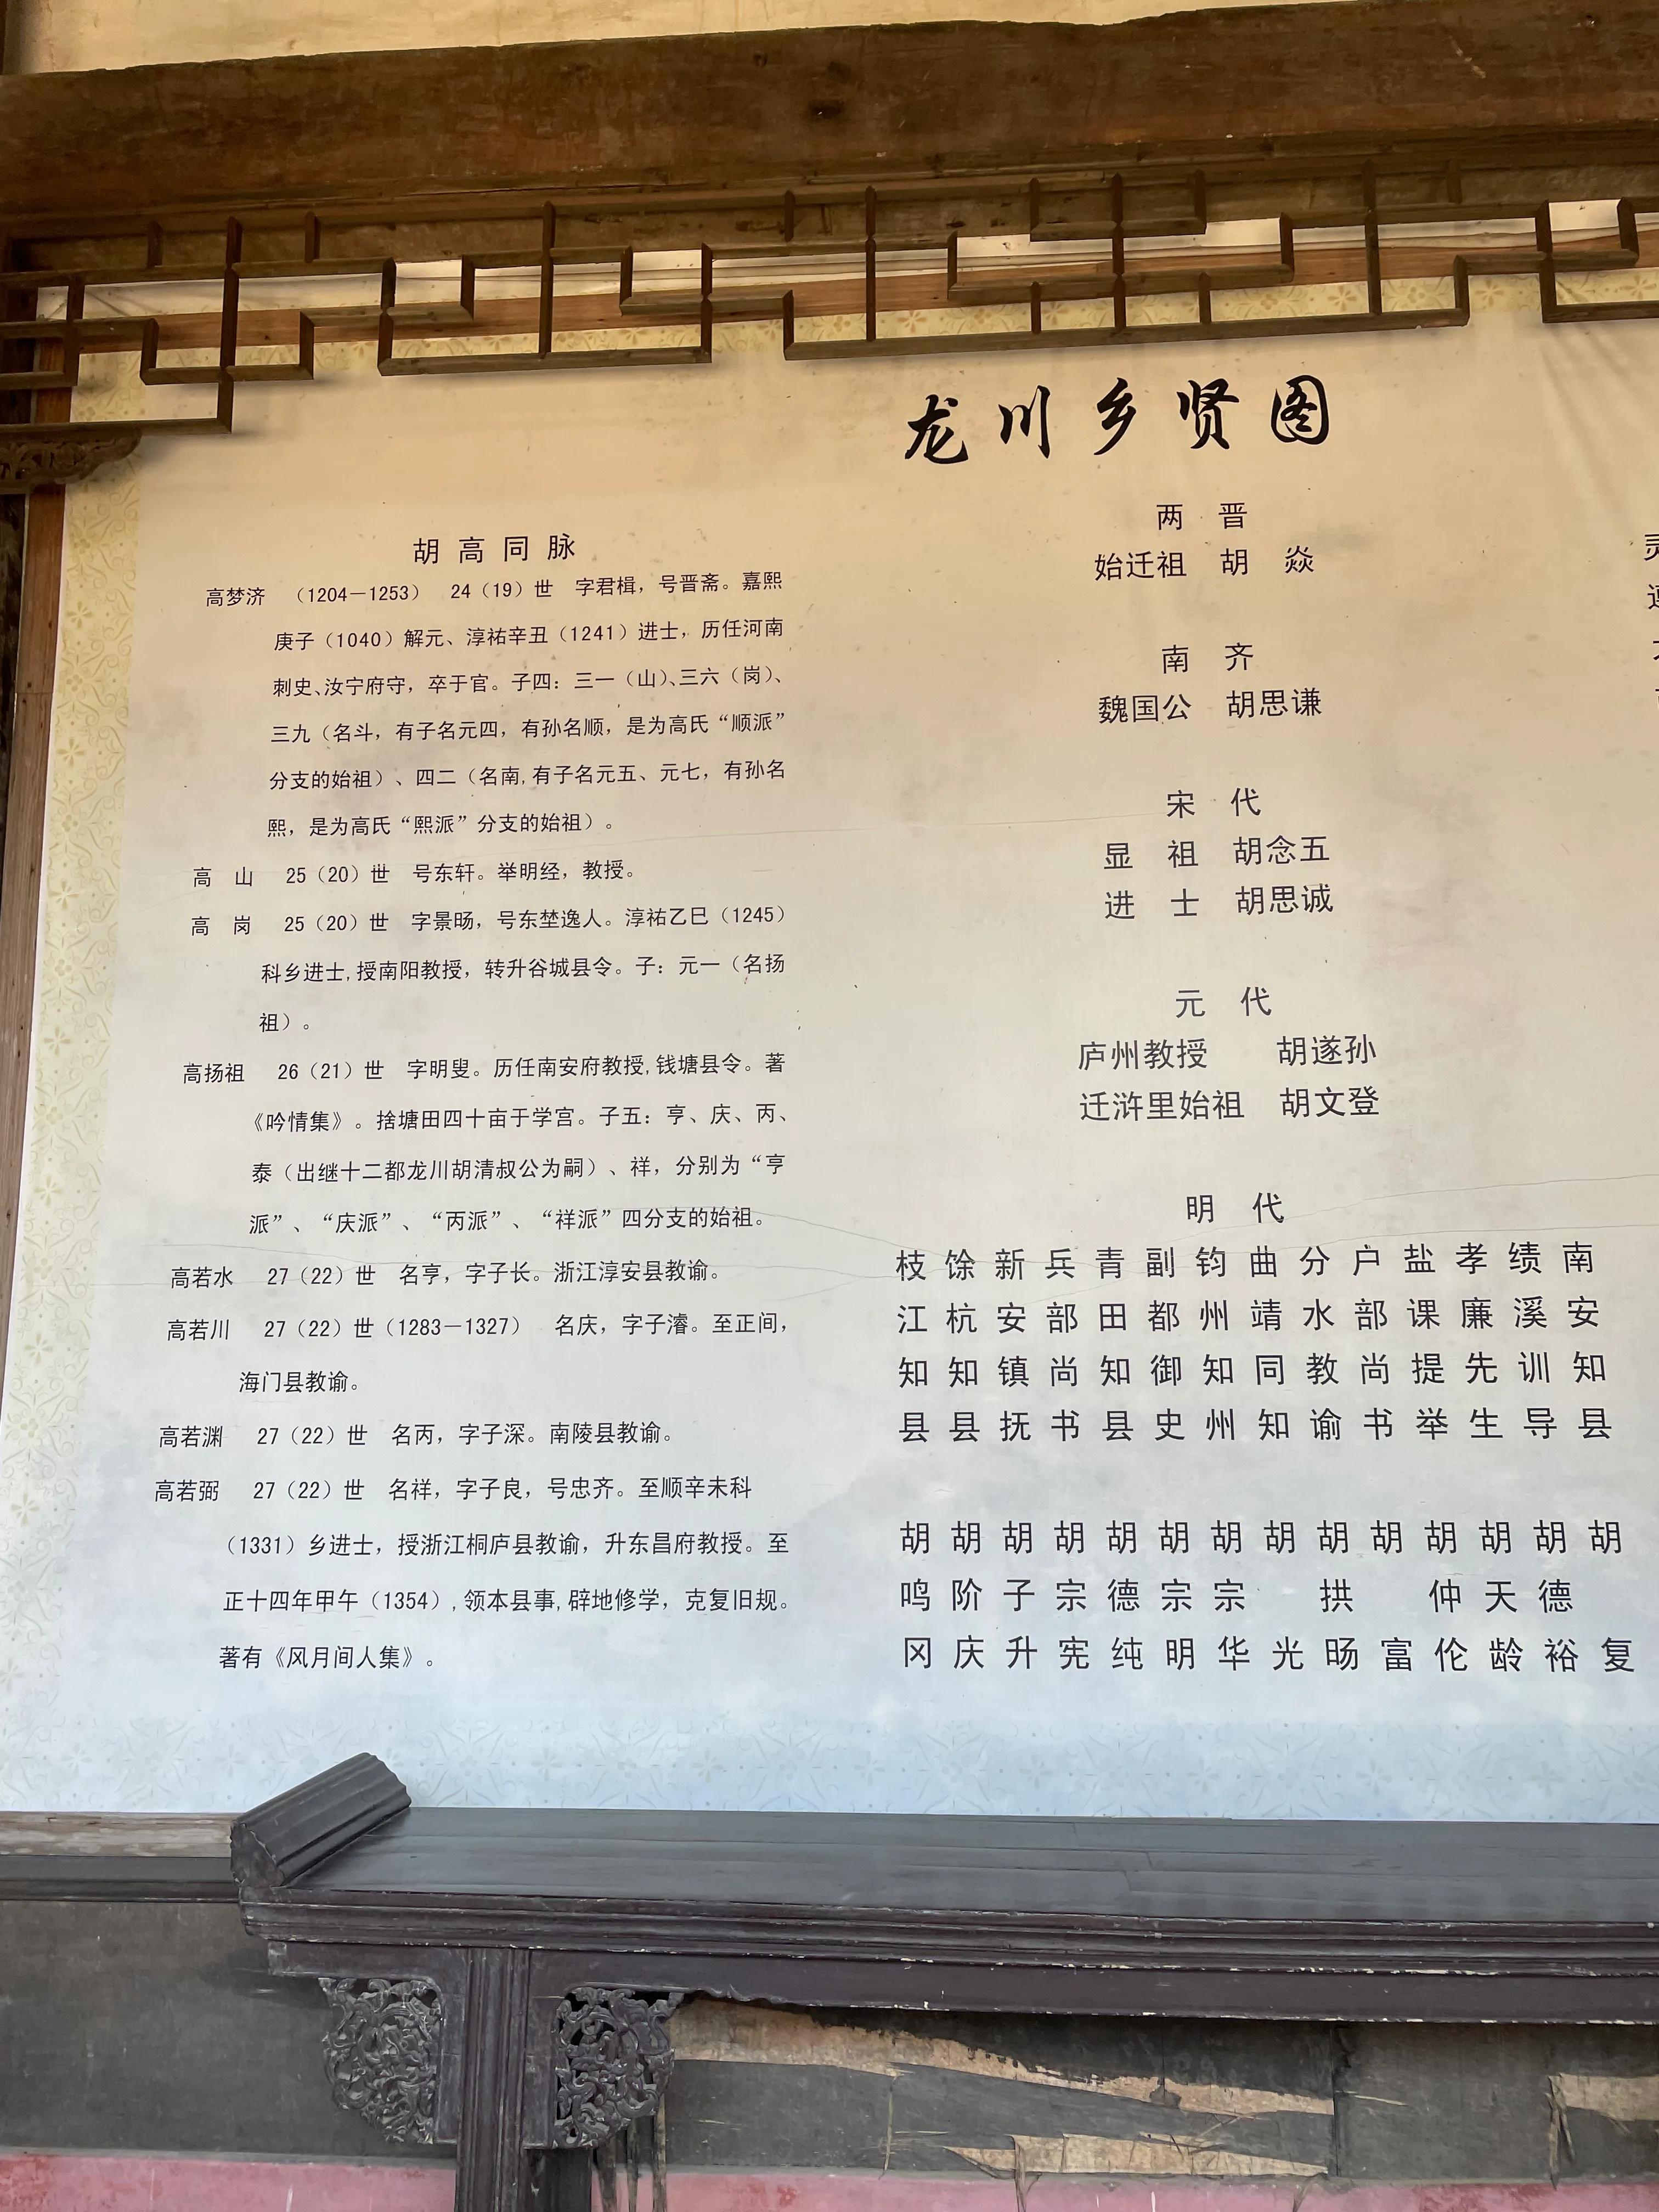 龙川乡贤图
胡高同脉
高梦济 (1204－1253) 24(19)世 字君楫，号晋斋。嘉熙
庚子(1040)解元、淳祐辛丑(1241)进士，历任河南
刺史、汝宁府守，卒于官。子四：三一(山)、三六(岗)、
三九(名斗，有子名元四，有孙名顺，是为高氏“顺派”
分支的始祖)、四二(名南，有子名元五、元七，有孙名
熙，是为高氏“熙派”分支的始祖)。
高 山 25(20)世 号东轩。举明经，教授。
高 岗 25(20)世 字景旸，号东埜逸人。淳祐乙巳(1245)
科乡进士，授南阳教授，转升谷城县令。子：元一(名扬
祖)。
高扬祖 26(21)世 字明叟。历任南安府教授，钱塘县令。著
《吟情集》。捨塘田四十亩于学宫。子五：亨、庆、丙、
泰(出继十二都龙川胡清叔公为嗣)、祥，分别为“亨
派”、“庆派”、“丙派”、“祥派”四分支的始祖。
高若水 27(22)世 名亨，字子长。浙江淳安县教谕。
高若川 27(22)世(1283－1327) 名庆，字子濬。至正间，
海门县教谕。
高若渊 27(22)世 名丙，字子深。南陵县教谕。
高若弼 27(22)世 名祥，字子良，号忠齐。至顺辛未科
(1331)乡进士，授浙江桐庐县教谕，升东昌府教授。至
正十四年甲午(1354)，领本县事，辟地修学，克复旧规。
著有《风月间人集》。
两 晋
始迁祖 胡 焱
南 齐
魏国公 胡思谦
宋 代
显 祖 胡念五
进 士 胡思诚
元 代
庐州教授 胡遂孙
迁浒里始祖 胡文登
明 代
南安知县 胡复
绩溪训导 胡德裕
孝廉先生 胡天龄
盐课提举 胡仲伦
户部尚书 胡富
分水教谕 胡拱旸
曲靖同知 胡光
钧州知州 胡宗华
副都御史 胡宗明
青田知县 胡德纯
兵部尚书 胡宗宪
新安镇抚 胡子升
馀杭知县 胡阶庆
枝江知县 胡鸣冈